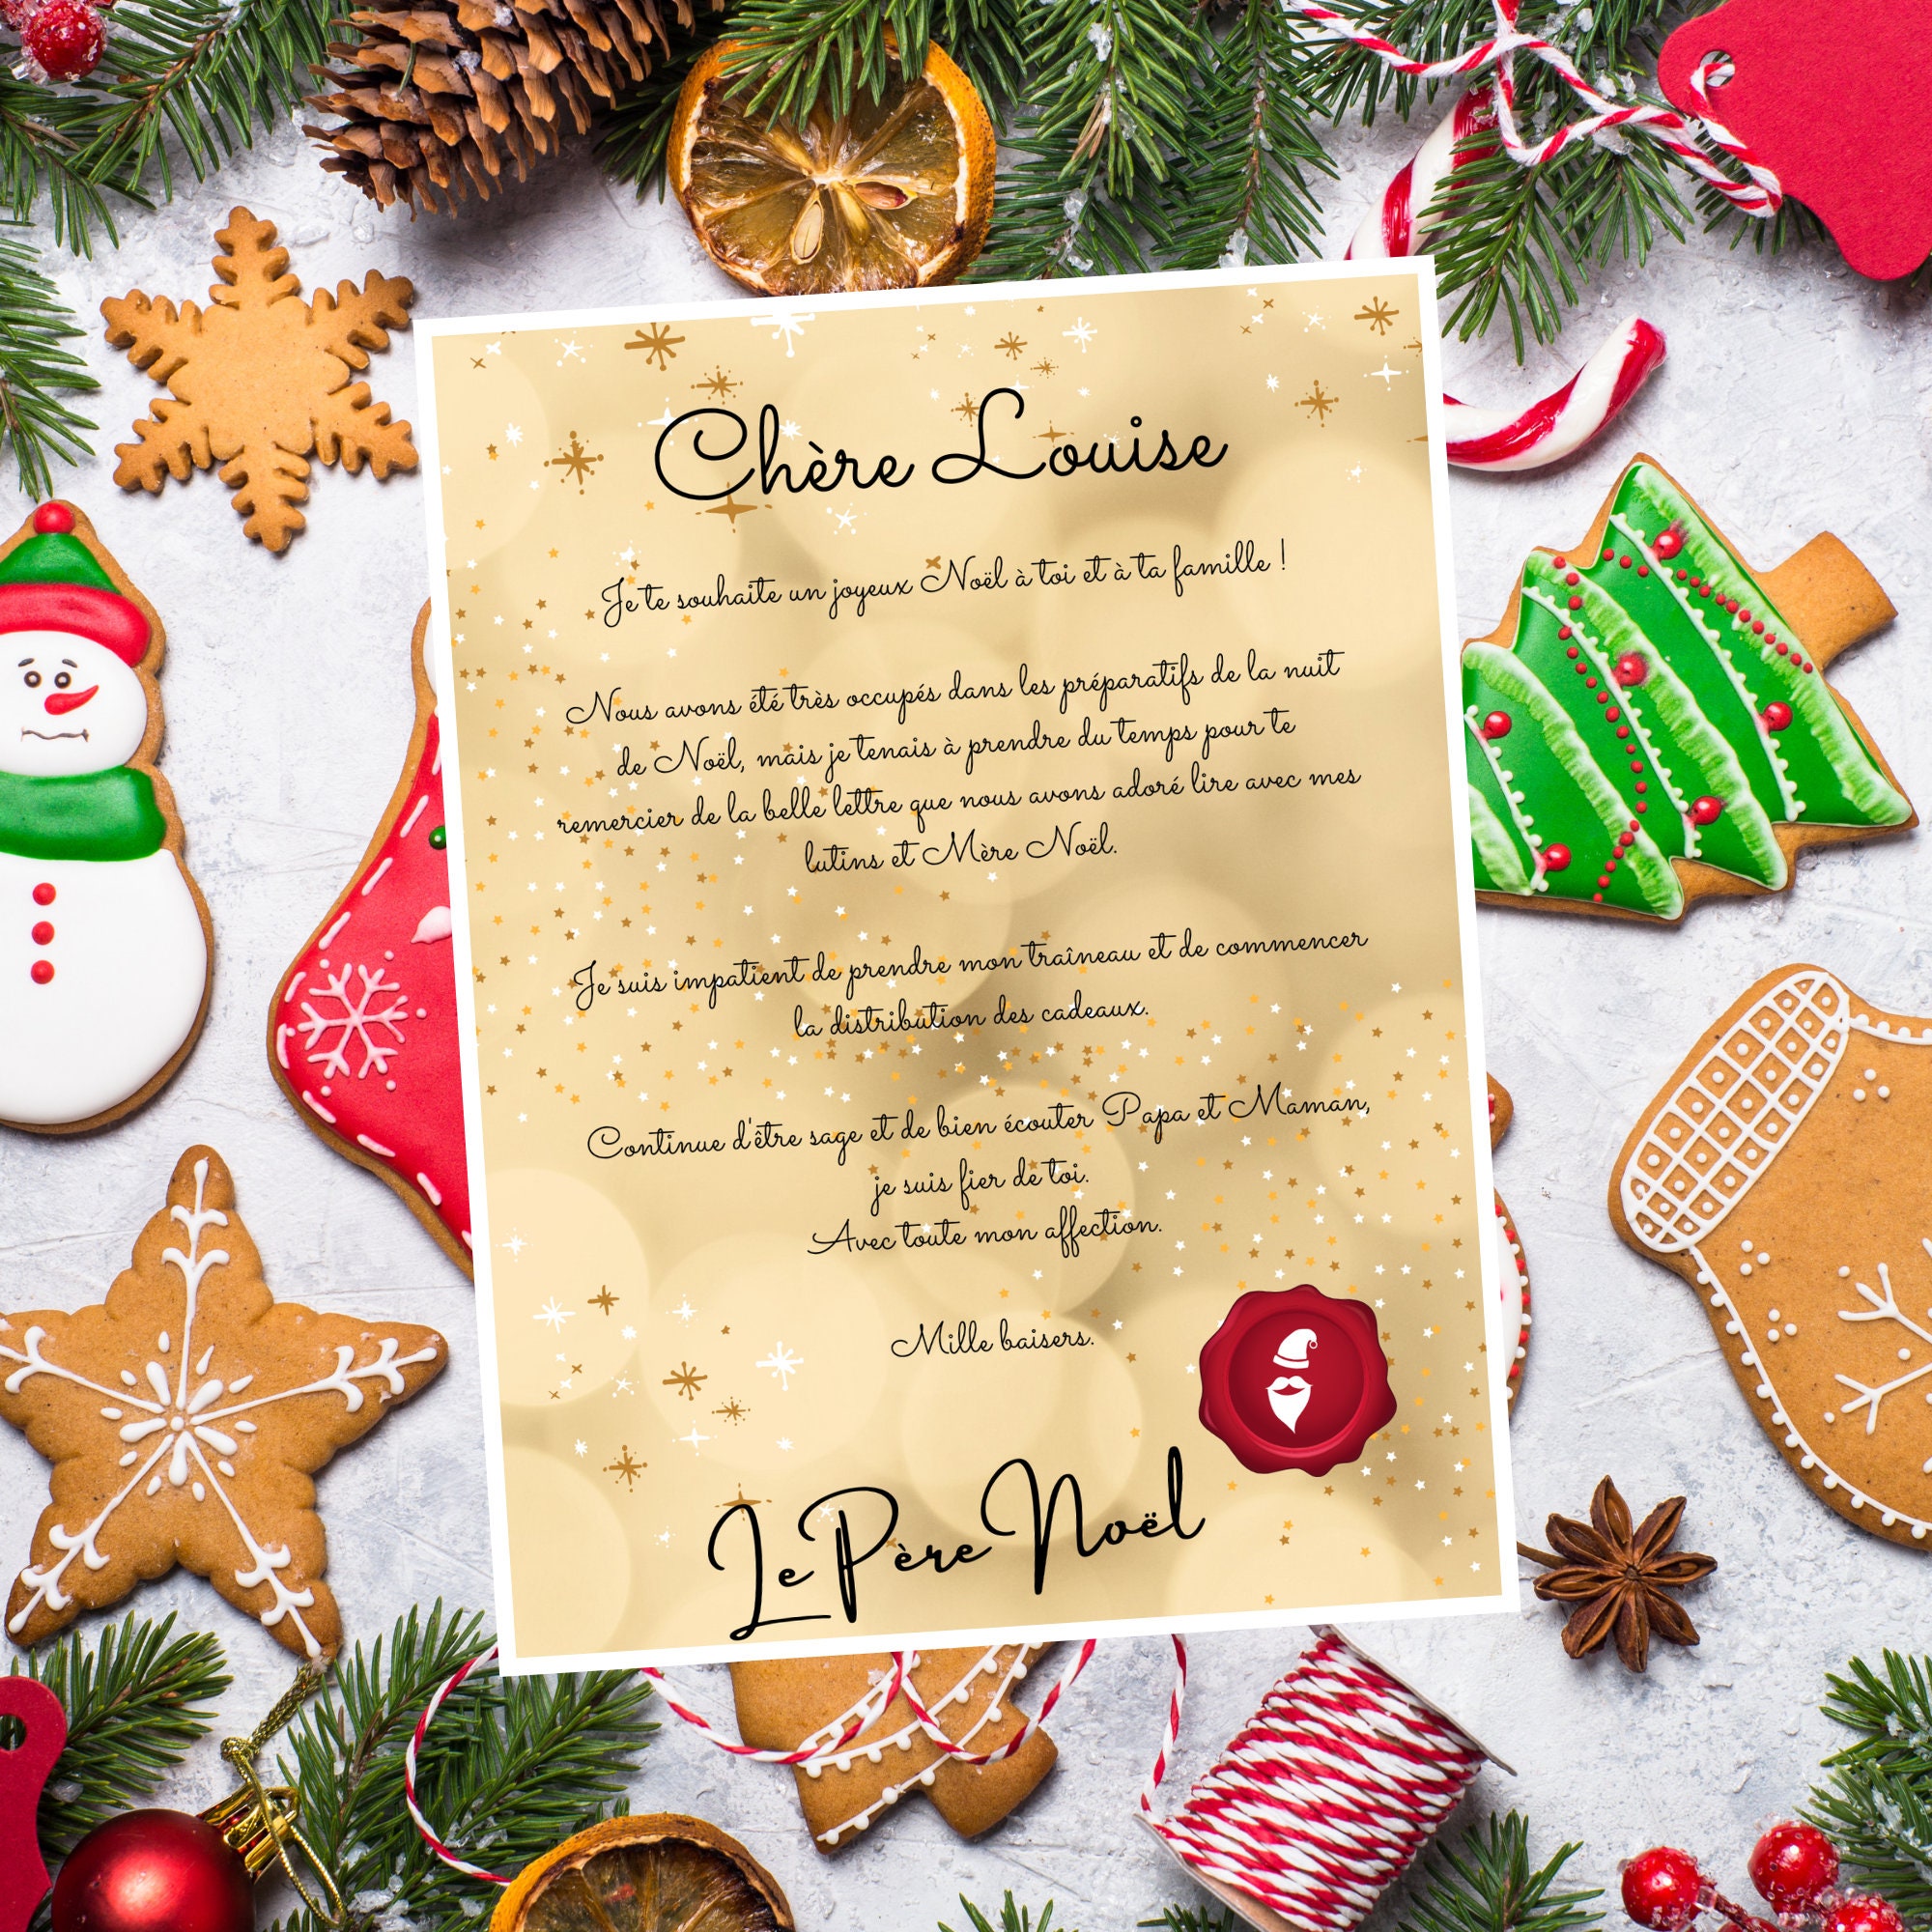 Chère Louise
Je te souhaite un joyeux Noël à toi et à ta famille !
Nous avons été très occupés dans les préparatifs de la nuit
de Noël, mais je tenais à prendre du temps pour te
remercier de la belle lettre que nous avons adoré lire avec mes
lutins et Mère Noël.
Je suis impatient de prendre mon traîneau et de commencer
la distribution des cadeaux.
Continue d'être sage et de bien écouter Papa et Maman,
je suis fier de toi.
Avec toute mon affection.
Mille baisers.
Le Père Noël